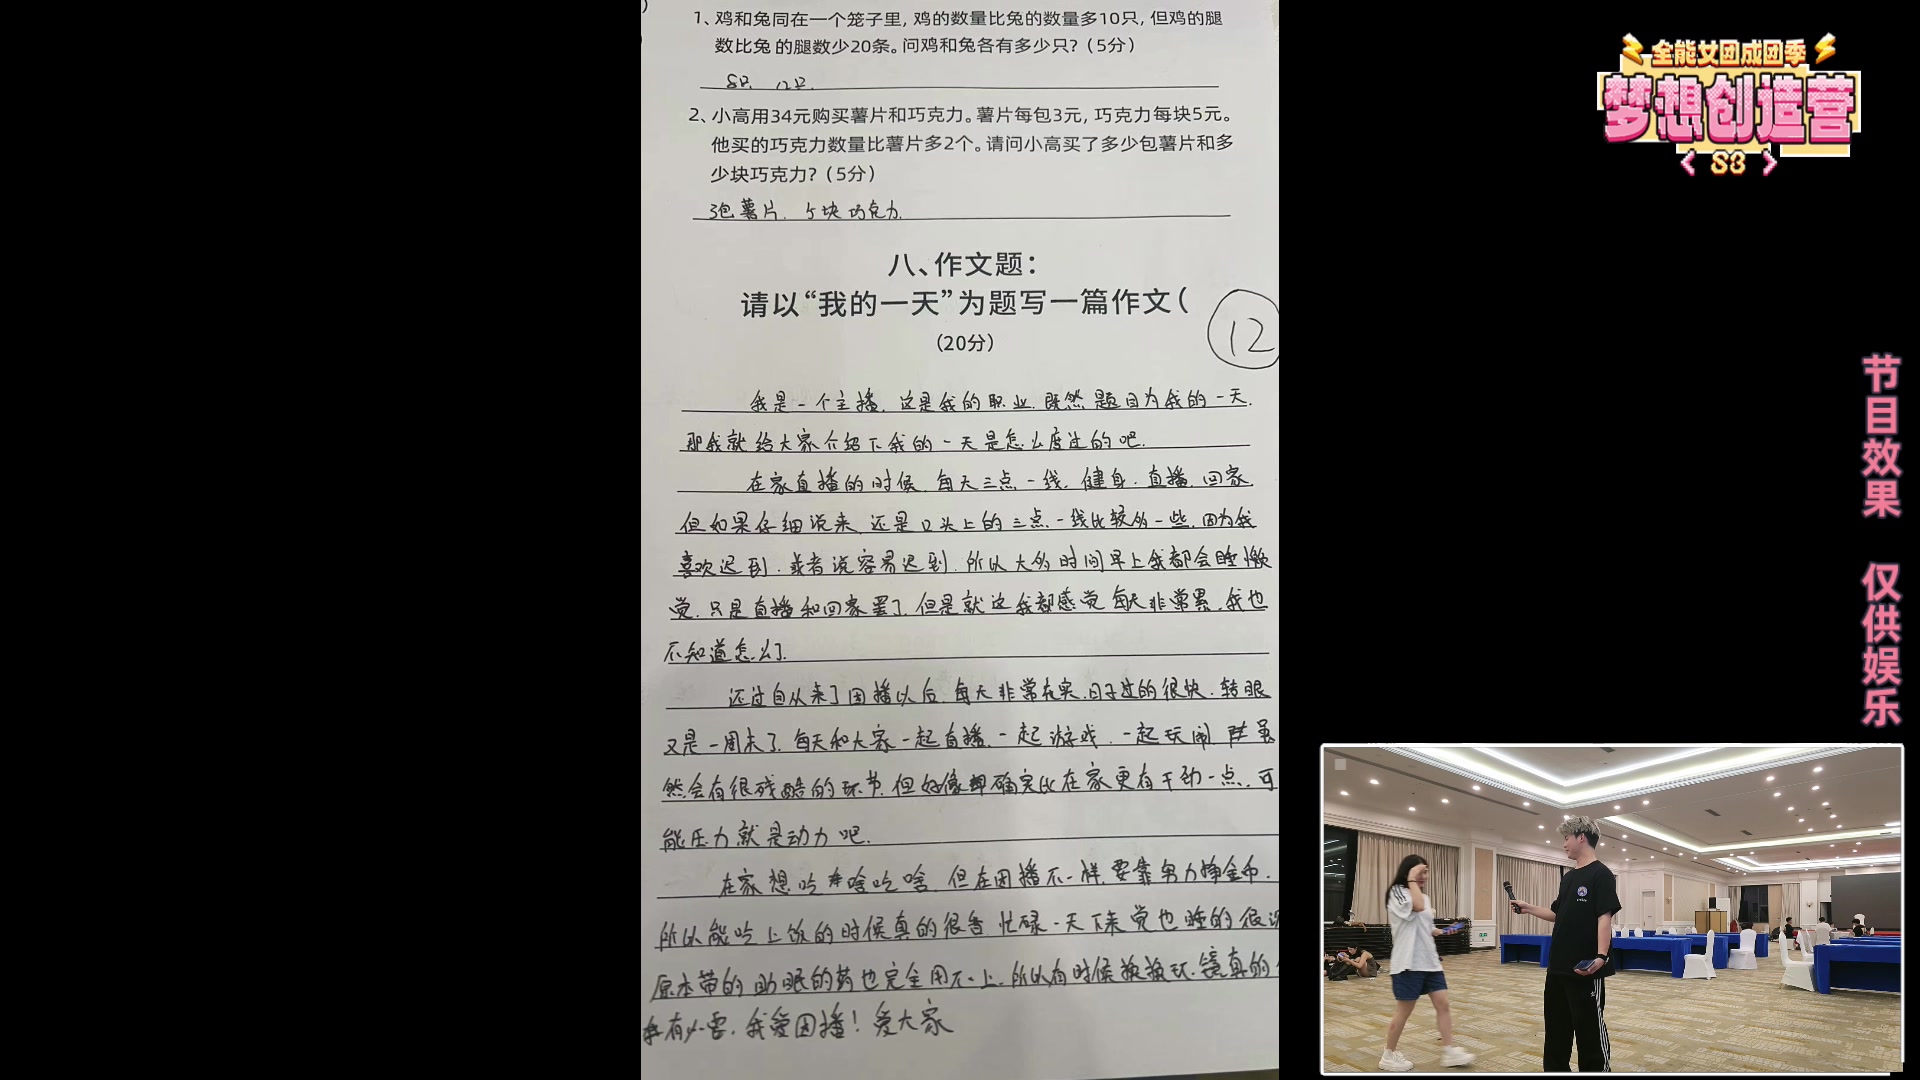 1、鸡和兔同在一个笼子里，鸡的数量比兔的数量多10只，但鸡的腿
数比兔的腿数少20条。问鸡和兔各有多少只？（5分）
8只. 12只.
2、小高用34元购买薯片和巧克力。薯片每包3元，巧克力每块5元。
他买的巧克力数量比薯片多2个。请问小高买了多少包薯片和多
少块巧克力？（5分）
3包薯片. 5块巧克力.
八、作文题：
请以“我的一天”为题写一篇作文（
（20分）
12
我是一个主播. 这是我的职业. 既然题目为我的一天.
那我就给大家介绍下我的一天是怎么度过的吧.
在家直播的时候. 每天三点一线. 健身. 直播. 回家.
但如果仔细说来. 还是口头上的三点一线比较多一些. 因为我
喜欢迟到. 或者说容易迟到. 所以大多时间早上我都会睡懒
觉. 只是直播和回家罢了. 但是就这我都感觉每天非常累. 我也
不知道怎么了.
还过自从来了团播以后. 每天非常充实. 日子过的很快. 转眼
又是一周末了. 每天和大家一起直播. 一起游戏. 一起玩闹. 虽
然会有很残酷的环节. 但好像确实比在家更有干劲一点. 可
能压力就是动力吧.
在家想吃啥吃啥. 但在团播不一样. 要靠努力挣金币.
所以能吃上饭的时候真的很香. 忙碌一天下来觉也睡的很
原本带的助眠的药也完全用不上. 所以有时候换换环境真的
有必要. 我爱团播！爱大家
全能女团成团季
梦想创造营
< S3 >
节目效果 仅供娱乐